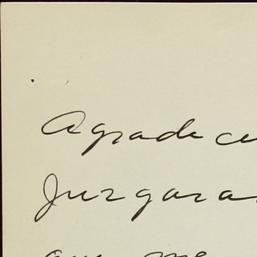 Agrade ce
Juzgara
que me